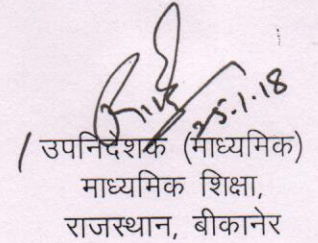 25.1.18
उपनिदेशक (माध्यमिक)
माध्यमिक शिक्षा,
राजस्थान, बीकानेर